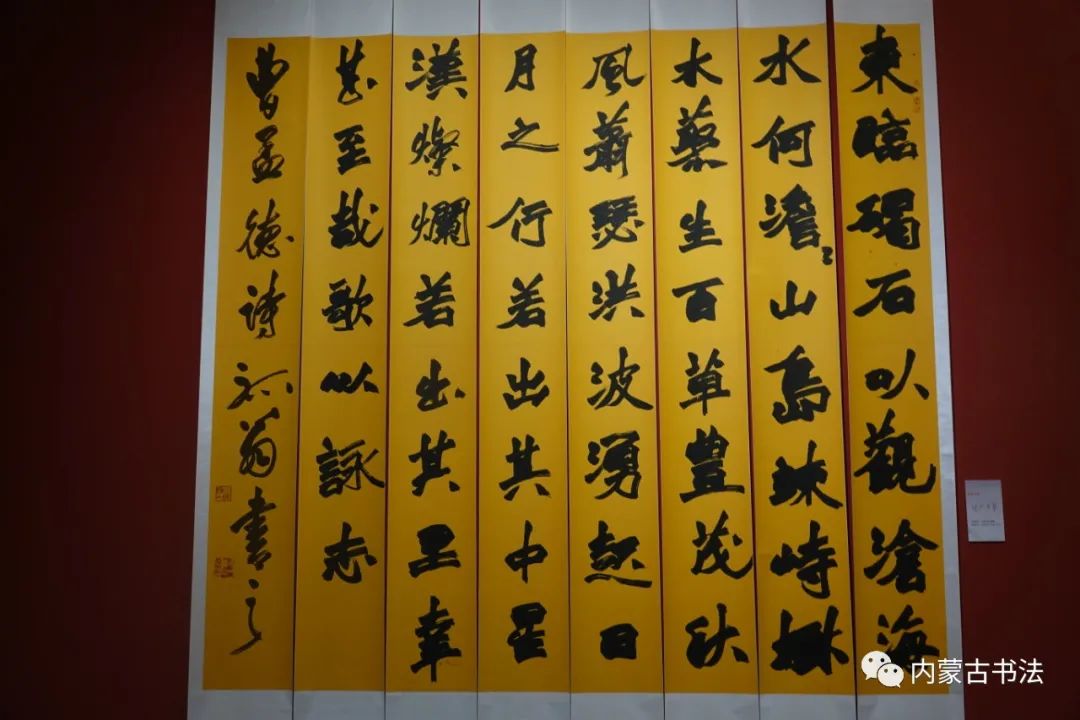 東臨碣石以觀滄海
水何澹〻山島竦峙樹
木藂生百草豐茂秋
風蕭瑟洪波湧起日
月之行若出其中星
漢燦爛若出其里幸
甚至哉歌以詠志
曹孟德詩翁書之
内蒙古书法